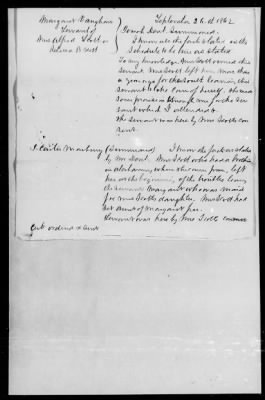 Margaret Vaughan
Servant of
Mrs Alfred Scott or
Selina B Scott
September 26th 1862
Sworn
I know the facts stated in the
Schedule to be true as stated
To my knowledge Mrs Scott owned this
servant. Mrs Scott left here more than
a year ago for the South leaving this
servant to take care of herself. She made
some provision through me for the ser-
vant which I attended to.
The servant was here by Mrs Scotts con-
sent.
(Summoned) I know the facts as stated
by Mr Mrs Scott who had a brother
in Alabama, when she came from, left
here at the beginning of the troubles leaving
the servant Margaret who was maid
for Mrs Scotts daughter. Mrs Scott had
set Aunt of Margaret free.
Servant was here by Mrs Scotts consent